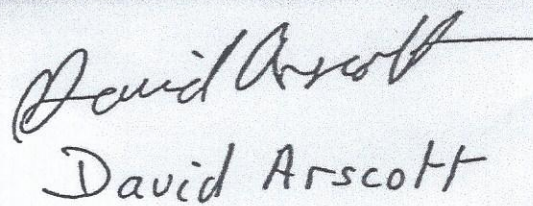 David Arscott
David Arscott